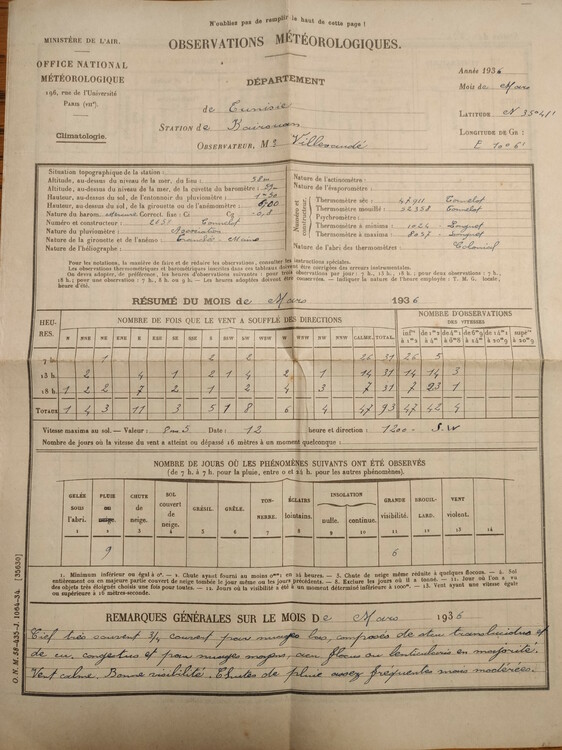 N'oubliez pas de remplir le haut de cette page !
MINISTÈRE DE L'AIR.
OFFICE NATIONAL
MÉTÉOROLOGIQUE
196, rue de l'Université
PARIS (VIIe)
Climatologie.
OBSERVATIONS MÉTÉOROLOGIQUES.
DÉPARTEMENT
de Tunisie
STATION de
OBSERVATEUR, M
Année 1936
Mois de Mars
LATITUDE N 35°41'
LONGITUDE DE GR :
E 10°6'
Situation topographique de la station :
Altitude, au-dessus du niveau de la mer, du lieu :
Altitude, au-dessus du niveau de la mer, de la cuvette du baromètre :
Hauteur, au-dessus du sol, de l'entonnoir du pluviomètre :
Hauteur, au-dessus du sol, de la girouette ou de l'anémomètre :
Nature du barom. Correct. fixe : Ct Cg - 0,8
Numéro et constructeur : Tonnelot
Nature du pluviomètre : Association
Nature de la girouette et de l'anémo :
Nature de l'héliographe :
Nature de l'actinomètre :
Nature de l'évaporomètre :
Numéro et constructeur.
Thermomètre sec : 47911 Tonnelot
Thermomètre mouillé : 52358 Tonnelot
Psychromètre :
Thermomètre à minima : 1024
Thermomètre à maxima : 8057
Nature de l'abri des thermomètres : Colonial
Pour les notations, la manière de faire et de réduire les observations, consulter les instructions spéciales.
Les observations thermométriques et barométriques inscrites dans les tableaux doivent être corrigées des erreurs instrumentales.
RÉSUMÉ DU MOIS de Mars 1936
HEURES. NOMBRE DE FOIS QUE LE VENT A SOUFFLÉ DES DIRECTIONS NOMBRE D'OBSERVATIONS DES VITESSES
N NNE NE ENE E ESE SE SSE S SSW SW WSW W WNW NW NNW CALME. TOTAL
7 h. 1 2 2 26 31 26 5
13 h. 2 4 1 2 1 4 2 1 14 31 14 14 3
18 h. 1 2 2 7 2 1 2 4 3 7 31 7 23 1
TOTAUX 1 4 3 11 3 5 1 8 6 4 47 93 47 42 4
Vitesse maxima au sol. — Valeur : 8 m S. Date : 12 heure et direction : 1200 - SW
Nombre de jours où la vitesse du vent a atteint ou dépassé 16 mètres à un moment quelconque :
NOMBRE DE JOURS OÙ LES PHÉNOMÈNES SUIVANTS ONT ÉTÉ OBSERVÉS
(de 7 h. à 7 h. pour la pluie, entre 0 et 24 h. pour les autres phénomènes).
GELÉE sous l'abri. PLUIE ou neige. CHUTE de neige. SOL couvert de neige. GRÉSIL. GRÊLE. TONNERRE. ÉCLAIRS lointains. INSOLATION nulle. continue. GRANDE visibilité. BROUILLARD. VENT violent.
1 2 3 4 5 6 7 8 9 10 11 12 13 14
9 6
1. Minimum inférieur ou égal à 0°. — 2. Chute ayant fourni au moins 0mm1 en 24 heures. — 3. Chute de neige même réduite à quelques flocons. — 4. Sol
entièrement ou en majeure partie couvert de neige tombée le jour même ou les jours précédents. — 8. Exclure les jours où il a tonné. — 11. Jour où l'on a vu
des objets très éloignés choisis une fois pour toutes. — 12. Jour où la visibilité a été à un moment déterminé inférieure à 1000m. — 13. Vent ayant une vitesse égale
ou supérieure à 16 mètres-seconde.
REMARQUES GÉNÉRALES SUR LE MOIS De Mars 1936
Ciel très souvent 3/4 couvert pour nuages bas, composés de stcu translucidus et
de cu. congestus et pour nuages moyens, acu flocus ou lenticularis en majorité.
Vent calme. Bonne visibilité. Chutes de pluie assez fréquentes mais modérées.
O.N.M. 58-435-J. 1064-34 [35630]